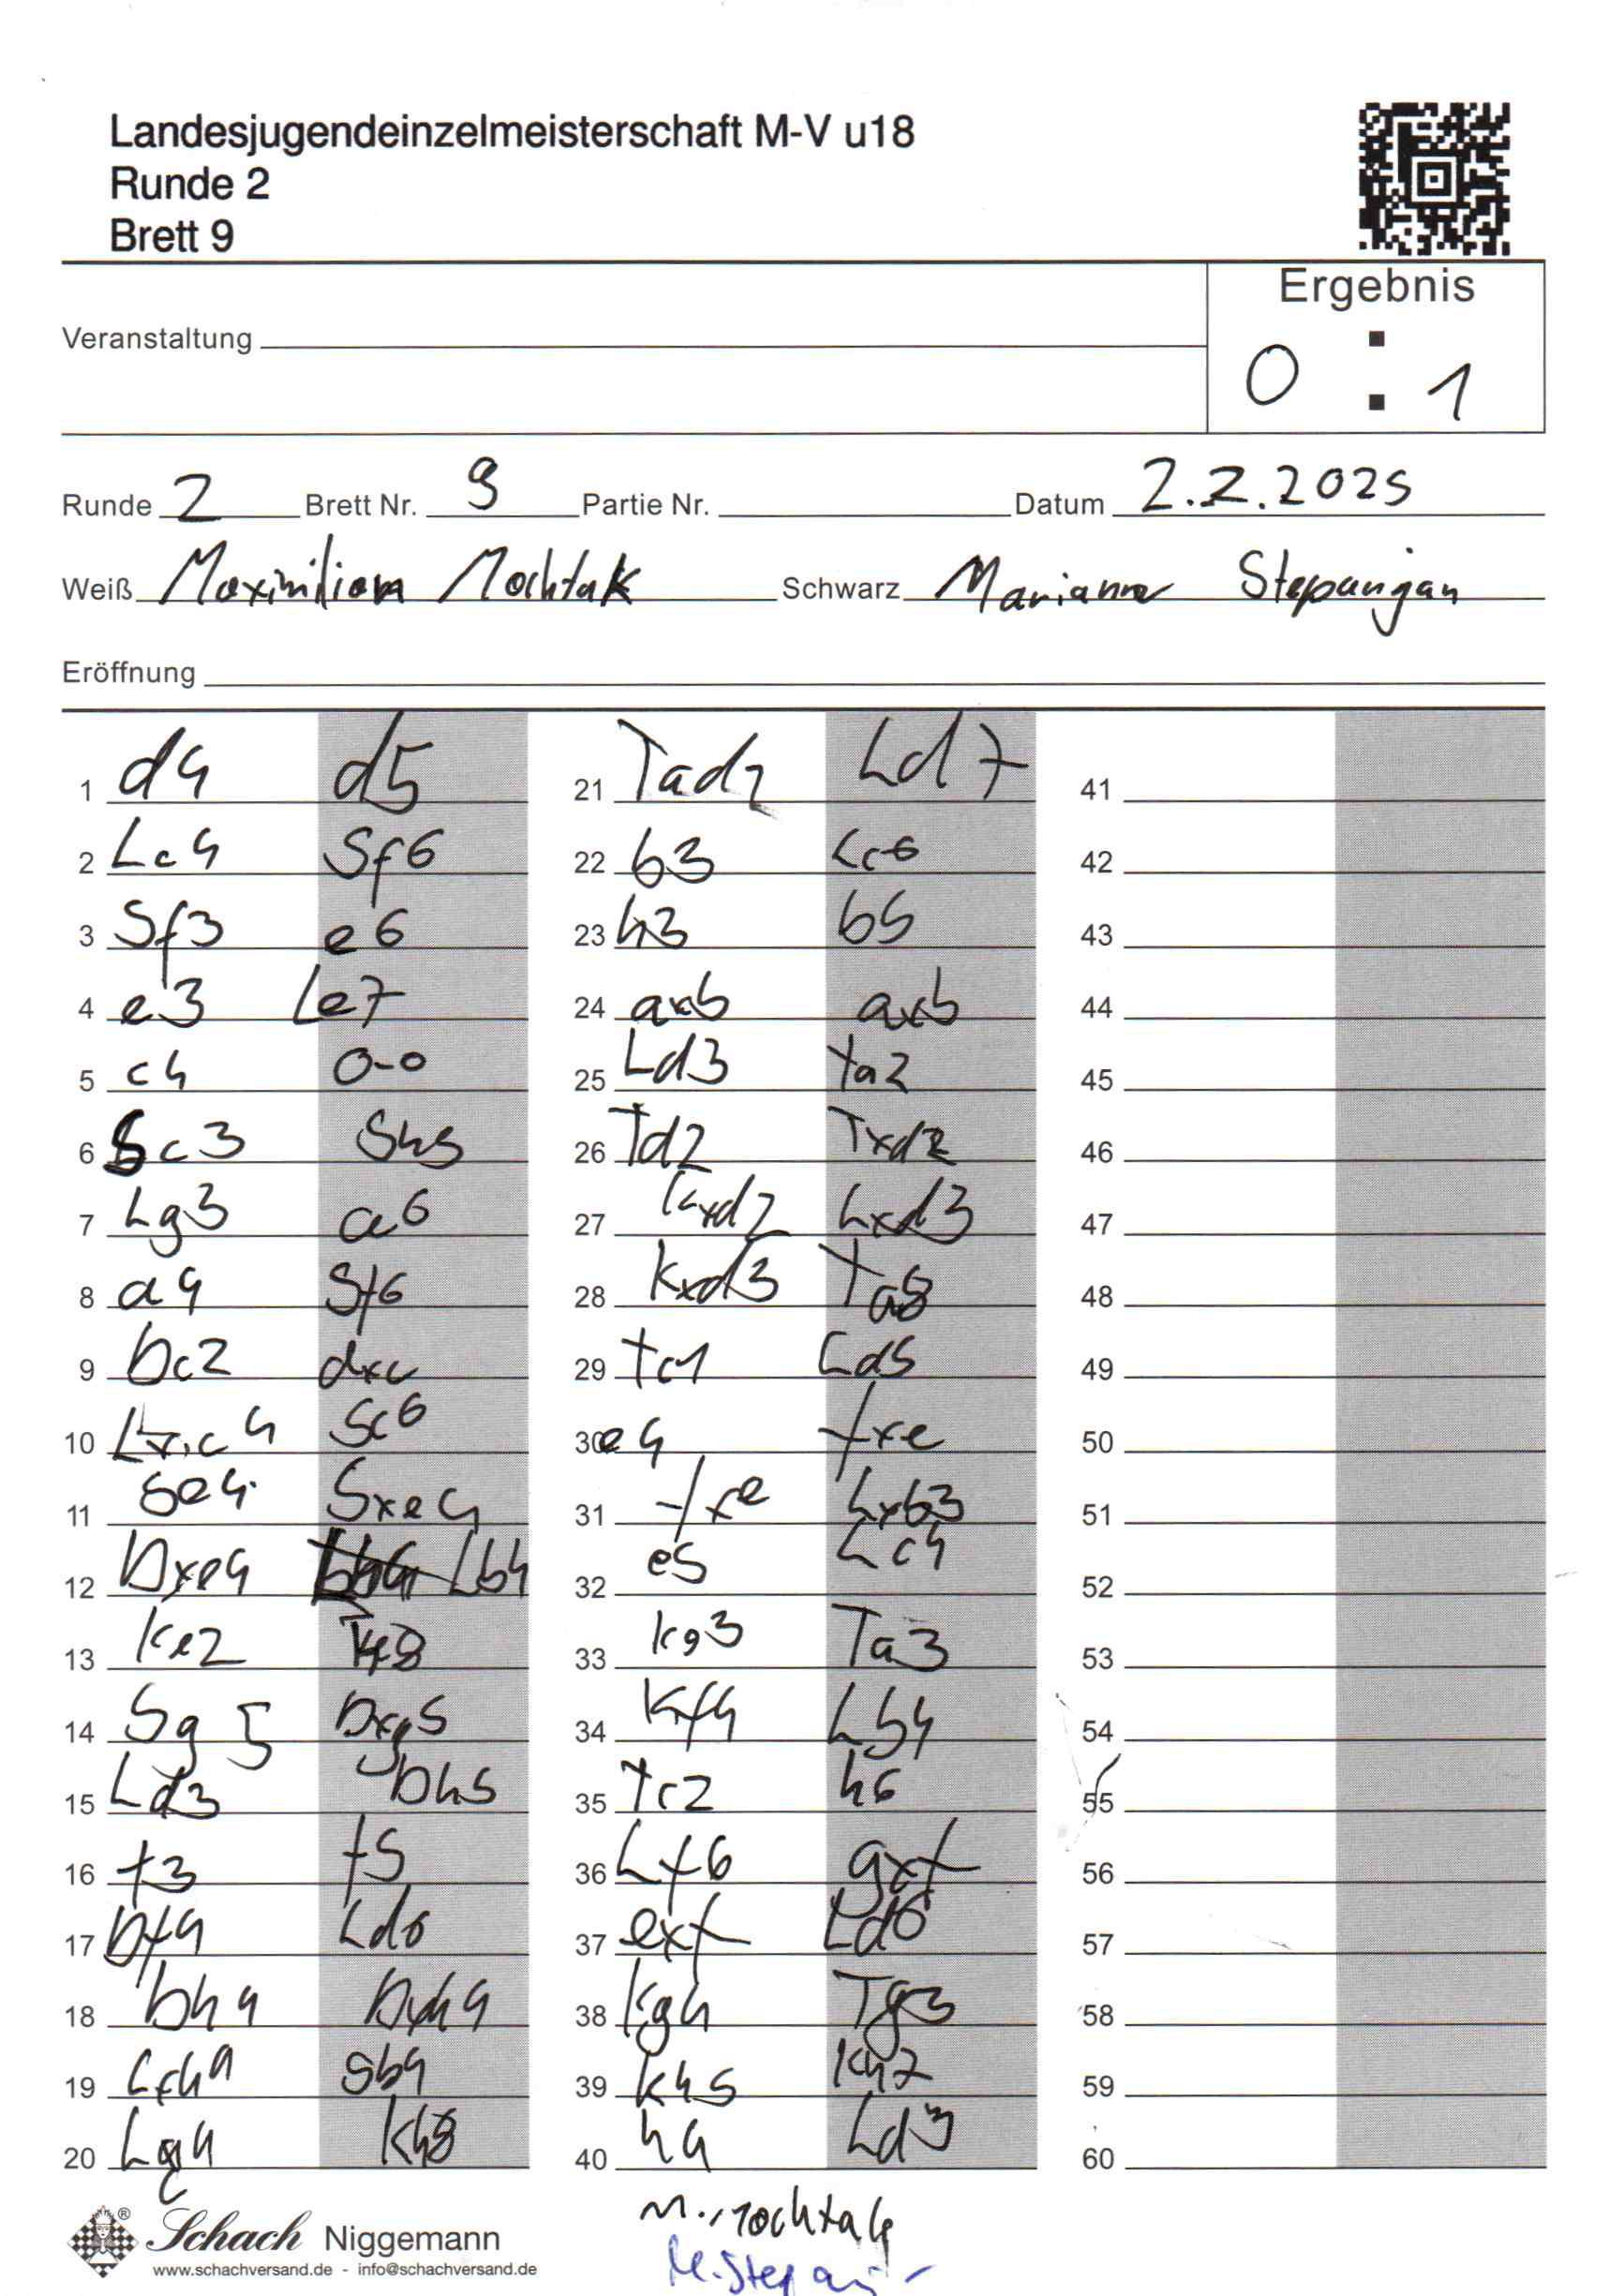 Landesjugendeinzelmeisterschaft M-V u18
Runde 2
Brett 9
Ergebnis
0 : 1
Veranstaltung
Runde 2 Brett Nr. 9 Partie Nr. Datum 2.2.2025
Weiß Maximiliam Mochtak Schwarz Marianna Stepanyan
Eröffnung
1 d4 d5
2 Lc4 Sf6
3 Sf3 e6
4 e3 Le7
5 c4 0-0
6 Sc3 Sh5
7 Lg3 a6
8 a4 Sf6
9 Dc2 dxc
10 Lxc4 Sc6
11 Se4 Sxe4
12 Dxe4 Lb4
13 Ke2 Te8
14 Sg5 Dxg5
15 Ld3 Dh5
16 f3 f5
17 Df4 Ld6
18 Dh4 Dxh4
19 Lxh4 Sb4
20 Lg4 Kh8
21 Tad1 Ld7
22 b3 Lc6
23 h3 b5
24 axb axb
25 Ld3 Ta2
26 Td2 Txd2
27 Kxd2 Lxd3
28 Kxd3 Ta8
29 Tc1 Ld5
30 e4 fxe
31 fxe Lxb3
32 e5 Lc4
33 Kg3 Ta3
34 Kf4 Lb4
35 Tc2 h6
36 Lf6 gxf
37 exf Ld6
38 Kg4 Tg3
39 Kh5 Kh7
40 h4 Ld3
41
42
43
44
45
46
47
48
49
50
51
52
53
54
55
56
57
58
59
60
Schach Niggemann
www.schachversand.de - info@schachversand.de
M. Mochtak
M. Stepan